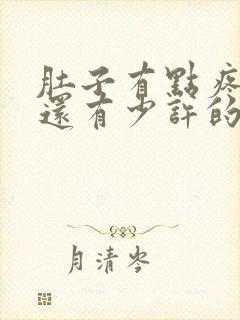 肚子有點疼
還有少許的
月清岑